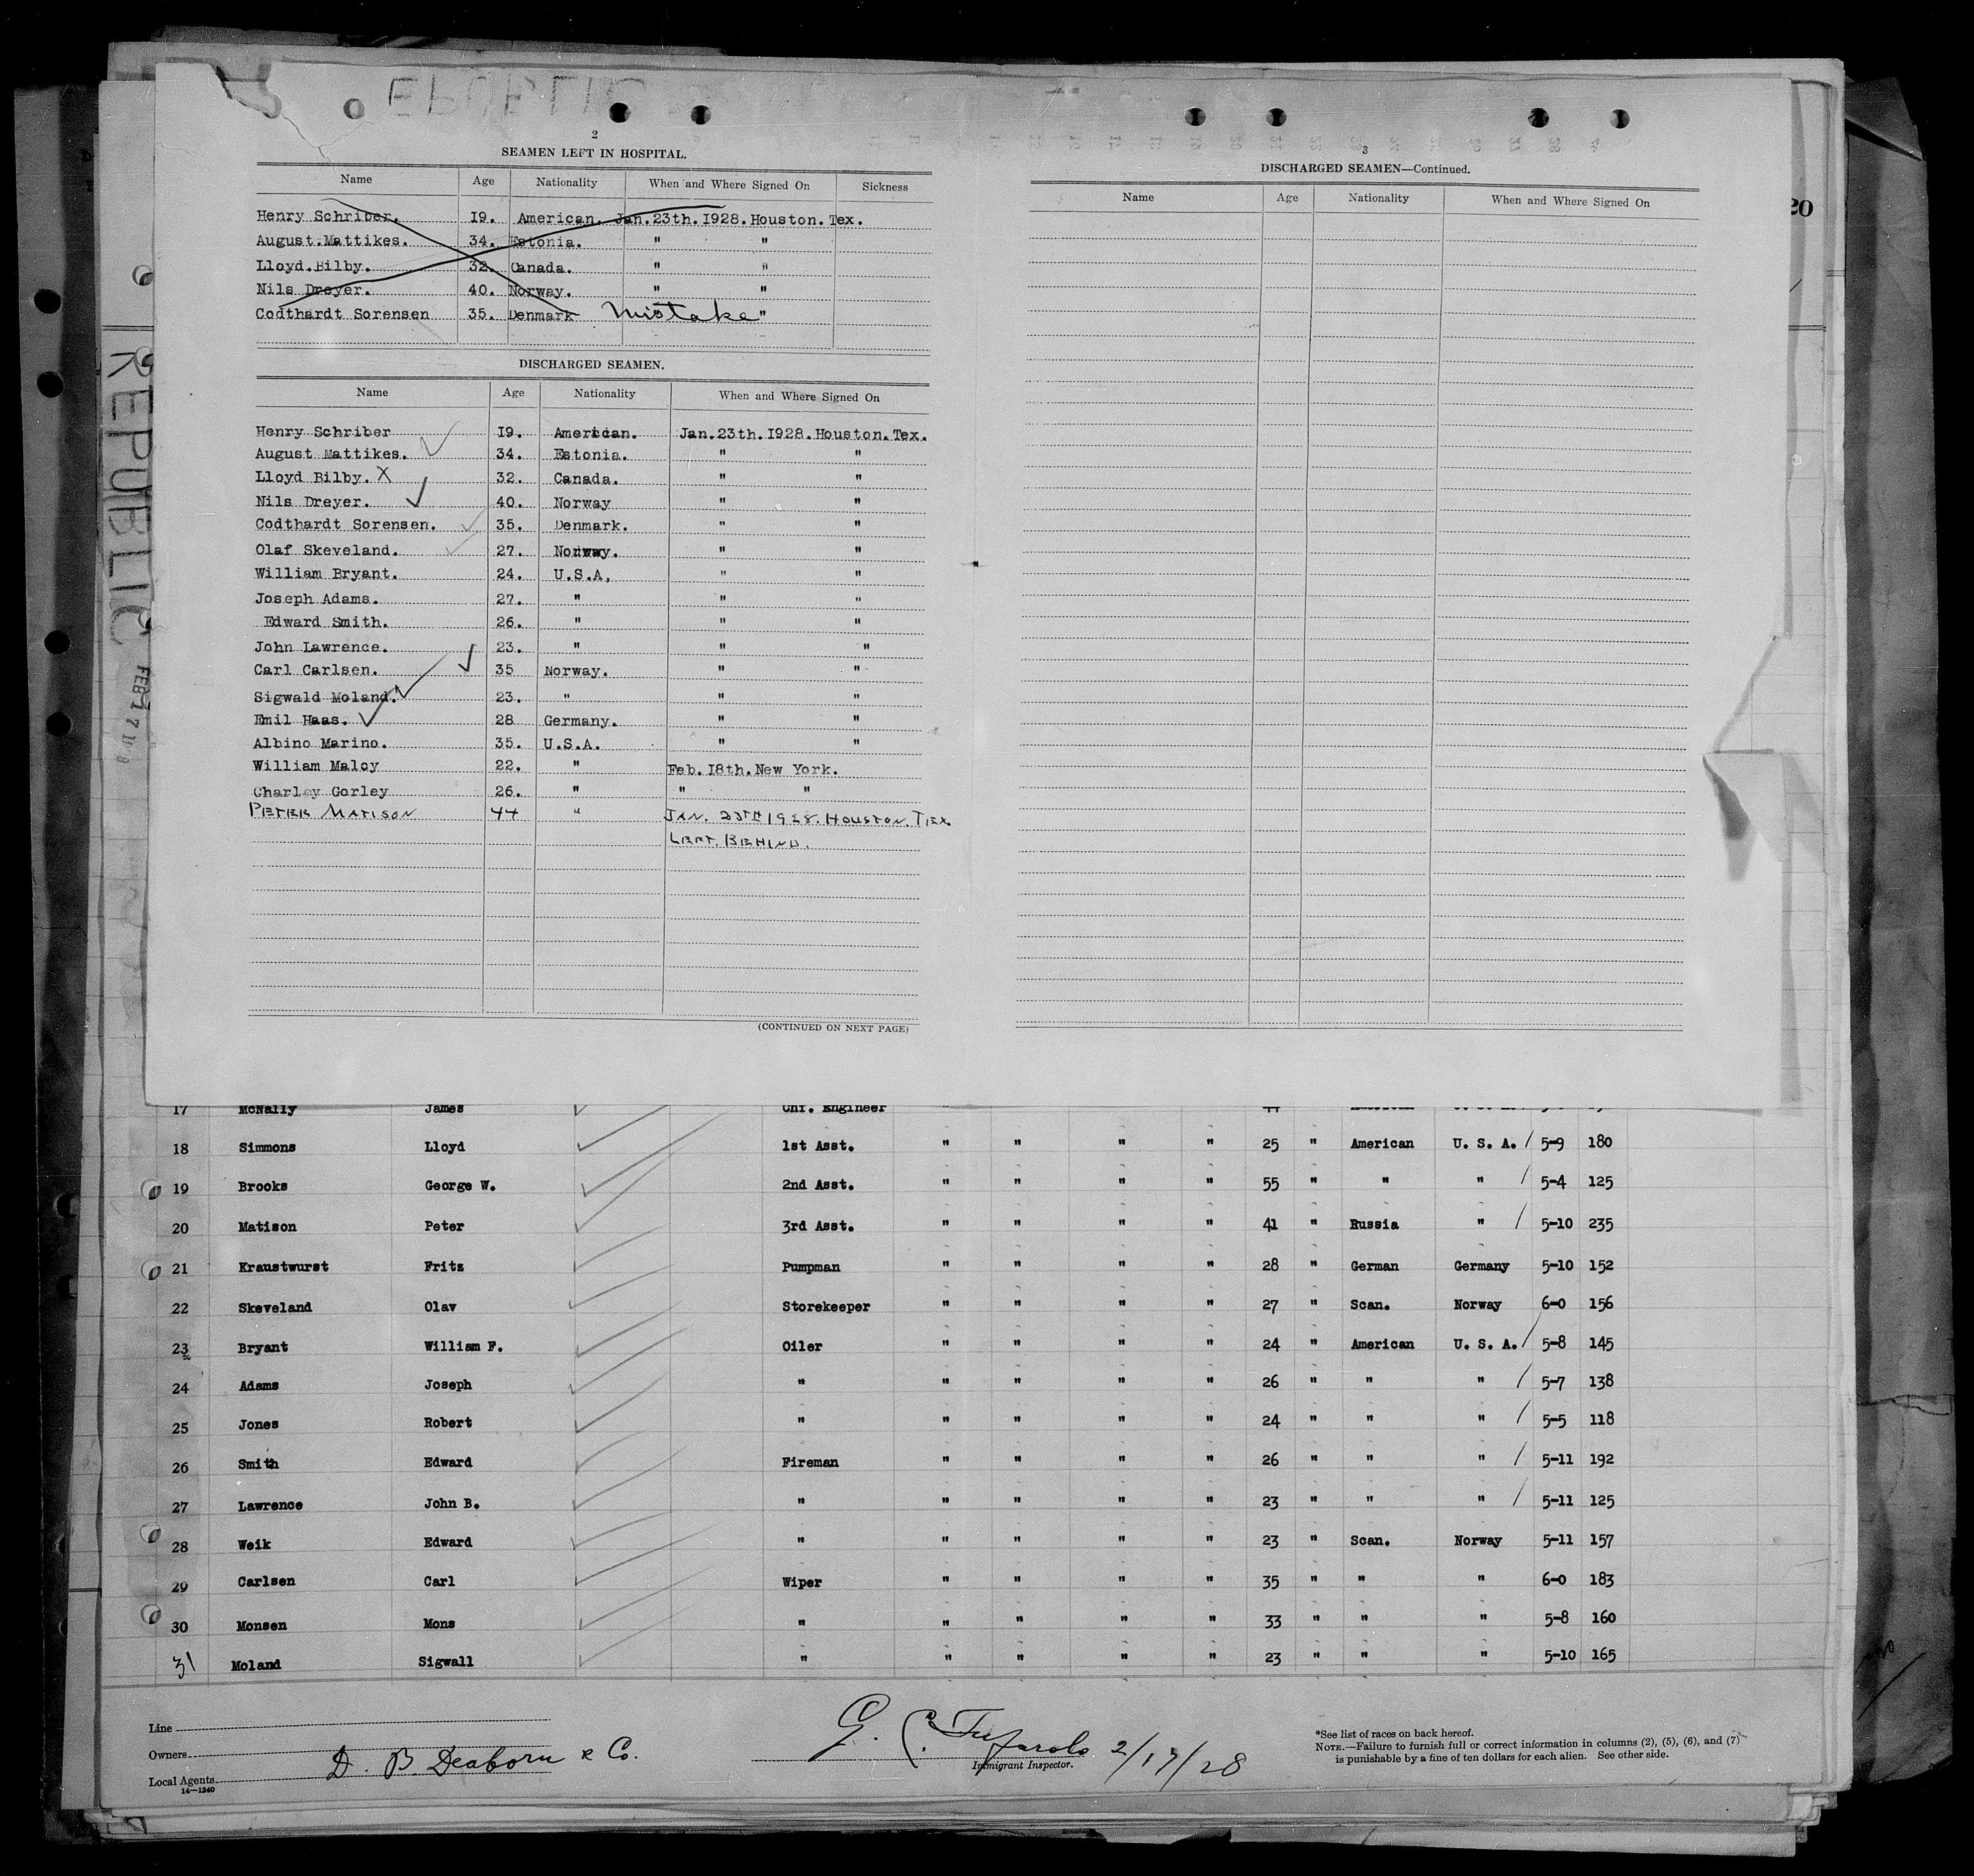 REPUBLIC
2
SEAMEN LEFT IN HOSPITAL.
Name Age Nationality When and Where Signed On Sickness
Henry Schriber. 19. American. Jan.23th.1928.Houston.Tex.
August.Mattikes. 34. Estonia. " "
Lloyd.Bilby. 32. Canada. " "
Nils Dreyer. 40. Norway. " "
Codthardt Sorensen 35. Denmark Mistake "
DISCHARGED SEAMEN.
Name Age Nationality When and Where Signed On
Henry Schriber 19. American. Jan.23th.1928.Houston.Tex.
August Mattikes. 34. Estonia. " "
Lloyd Bilby. X 32. Canada. " "
Nils Dreyer. 40. Norway " "
Codthardt Sorensen. 35. Denmark. " "
Olaf Skeveland. 27. Norway. " "
William Bryant. 24. U.S.A. " "
Joseph Adams. 27. " " "
Edward Smith. 26. " " "
John Lawrence. 23. " " "
Carl Carlsen. 35 Norway. " "
Sigwald Moland. 23. " " "
Emil Haas. 28 Germany. " "
Albino Marino. 35. U.S.A. " "
William Malcy 22. " Feb.18th.New York.
Charley Gorley 26. " " "
PETER MATISON 44 " JAN. 23TH 1928. HOUSTON. TEX
LEFT. BEHIND.
(CONTINUED ON NEXT PAGE)
3
DISCHARGED SEAMEN—Continued.
Name Age Nationality When and Where Signed On
20
REPUBLIC
FEB 17
17 McNally James Chf. Engineer 44 American
18 Simmons Lloyd 1st Asst. " " " " 25 " American U. S. A. / 5-9 180
19 Brooks George W. 2nd Asst. " " " " 55 " " " / 5-4 125
20 Matison Peter 3rd Asst. " " " " 41 " Russia " / 5-10 235
21 Kraustwurst Fritz Pumpman " " " " 28 " German Germany 5-10 152
22 Skeveland Olav Storekeeper " " " " 27 " Scan. Norway 6-0 156
23 Bryant William F. Oiler " " " " 24 " American U. S. A. / 5-8 145
24 Adams Joseph " " " " " 26 " " " / 5-7 138
25 Jones Robert " " " " " 24 " " " / 5-5 118
26 Smith Edward Fireman " " " " 26 " " " / 5-11 192
27 Lawrence John B. " " " " " 23 " " " / 5-11 125
28 Weik Edward " " " " " 23 " Scan. Norway 5-11 157
29 Carlsen Carl Wiper " " " " 35 " " " 6-0 183
30 Monsen Mons " " " " " 33 " " " 5-8 160
31 Moland Sigwall " " " " " 23 " " " 5-10 165
Line
Owners
Local Agents D. B. Deaborn & Co.
14—1240
G. C. 2/17/28
Immigrant Inspector.
*See list of races on back hereof.
NOTE.—Failure to furnish full or correct information in columns (2), (5), (6), and (7)
is punishable by a fine of ten dollars for each alien. See other side.